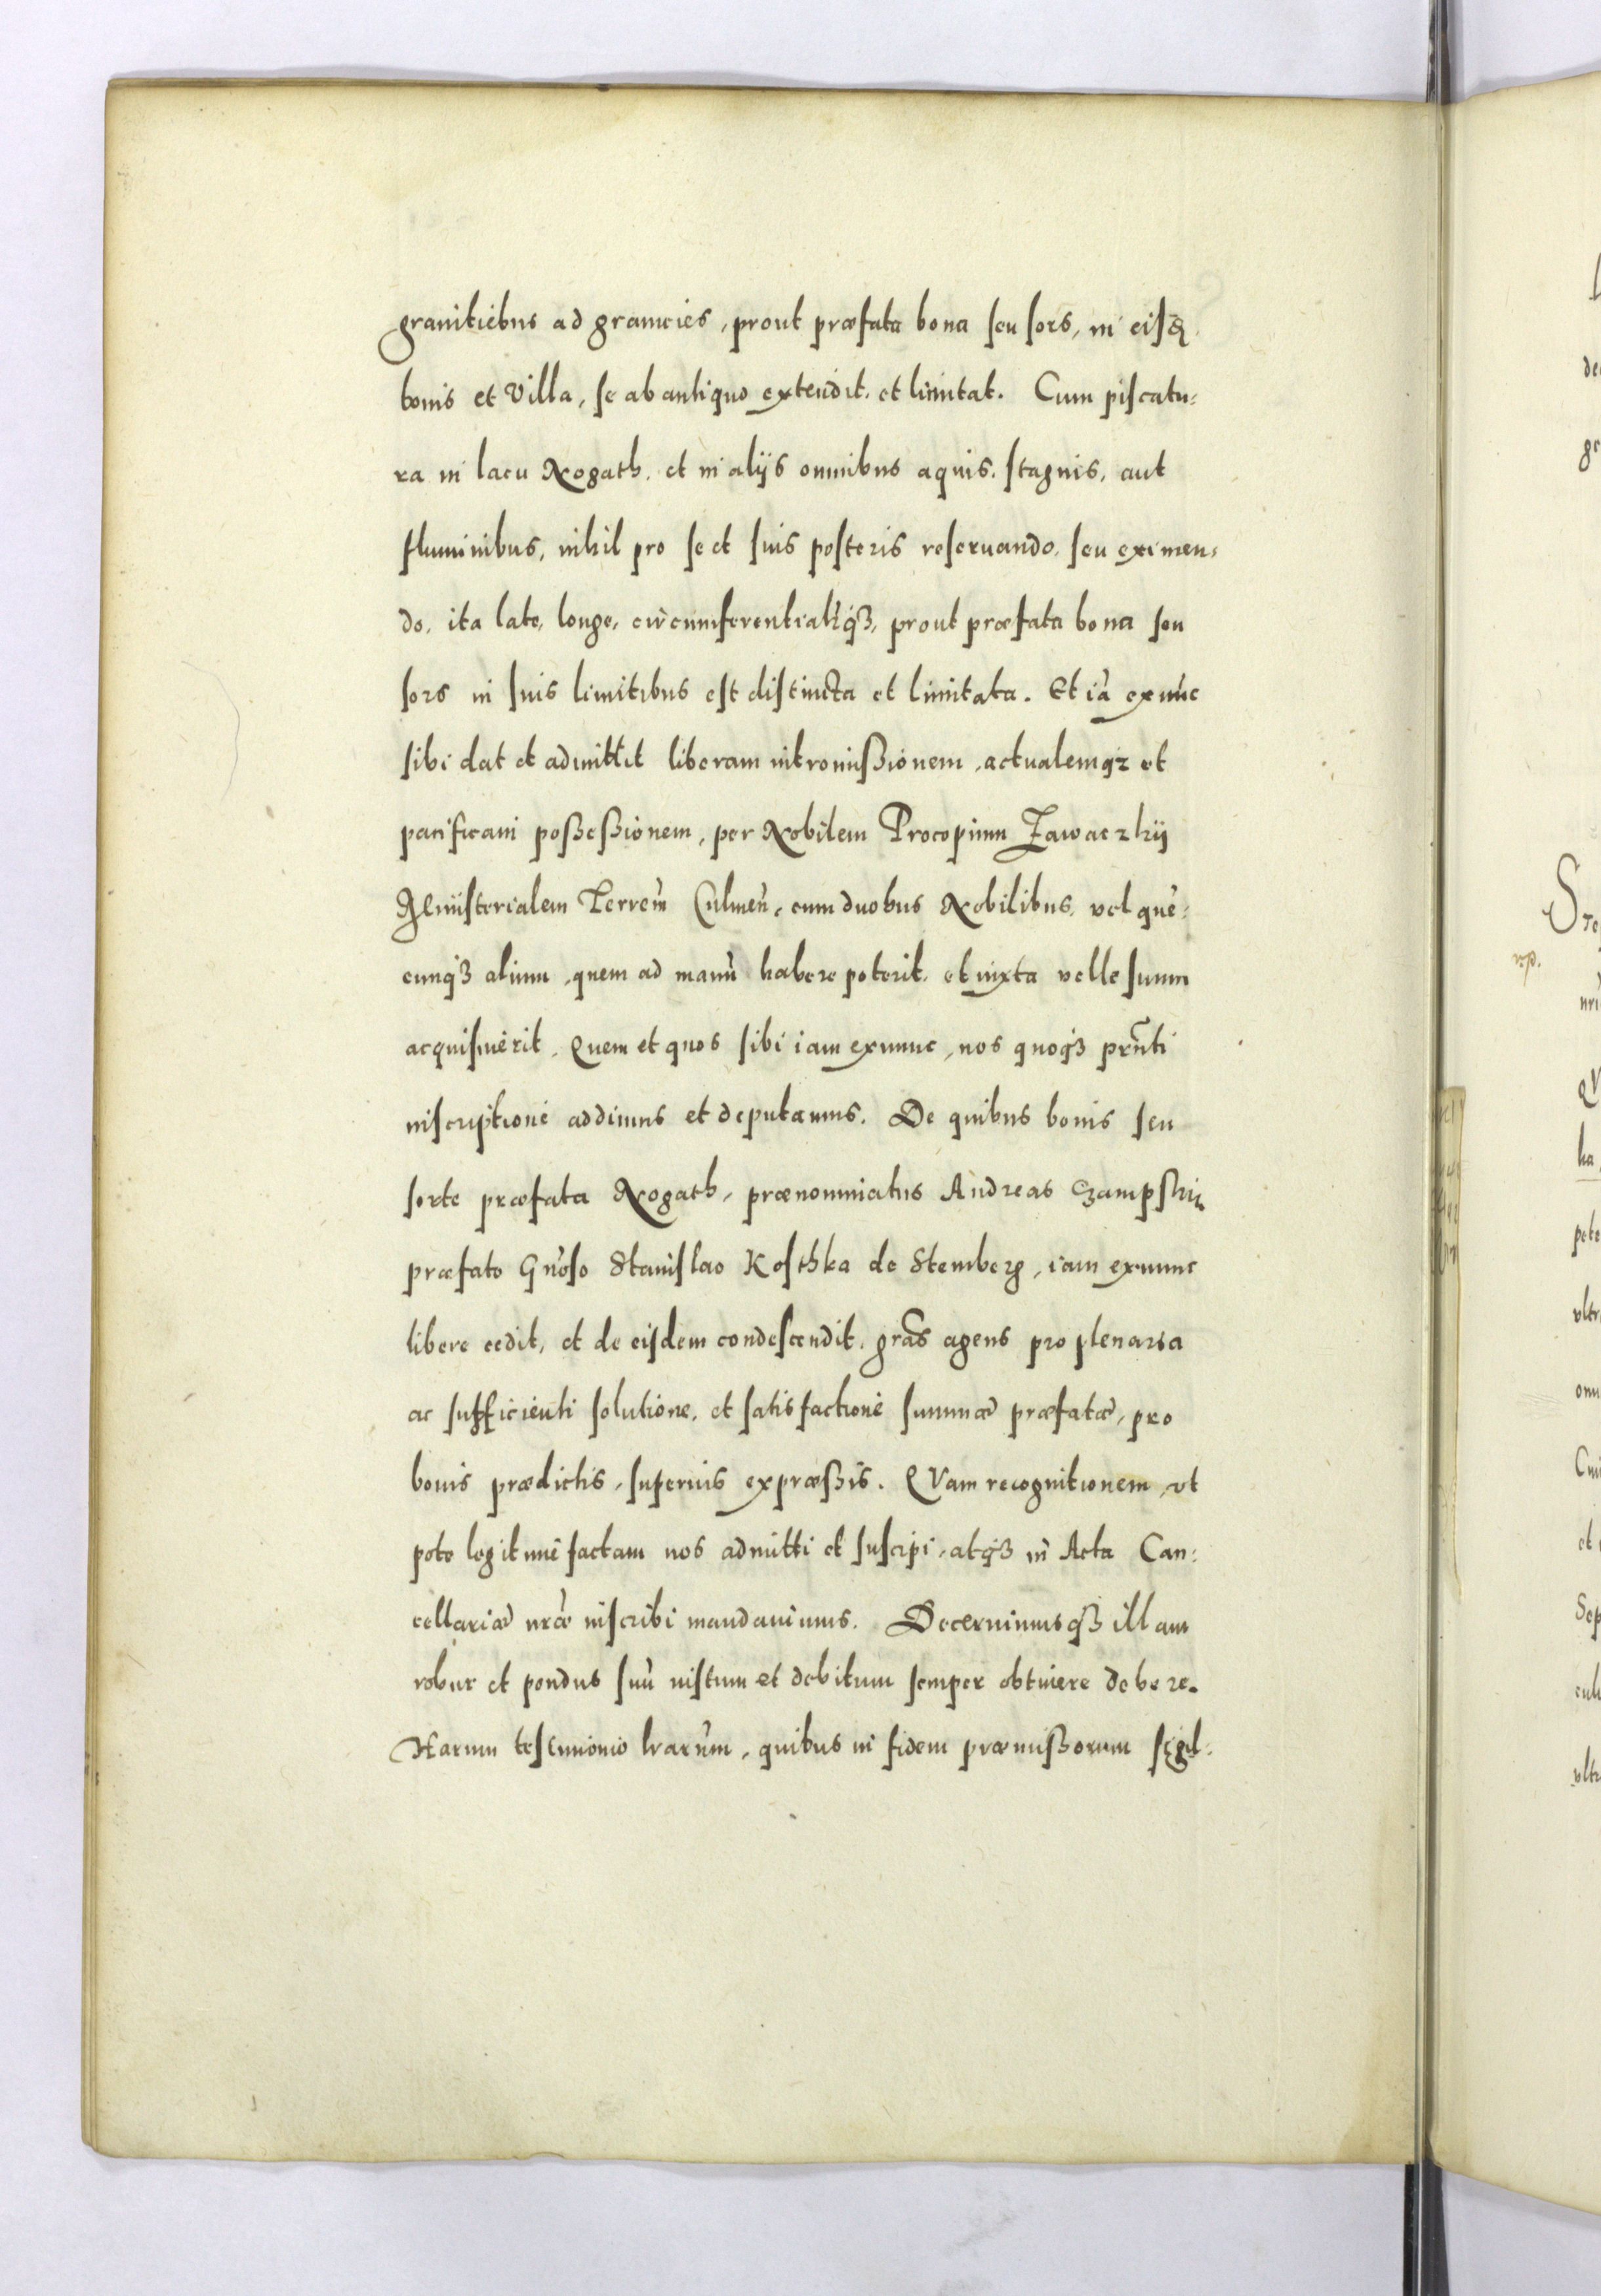 granitiebus ad granicies, prout præfata bona seu sors, in eisdẽ
bonis et Villa, se ab antiquo extendit, et limitat. Cum piscatu:
ra in lacu Nogath, et in alijs omnibus aquis, stagnis, aut
fluminibus, nihil pro se et suis posteris reseruando, seu eximen:
do, ita late, longe, circumferentialiqꝫ, prout præfata bona seu
sors in suis limitibus est distincta et limitata. Et iã exnũc
sibi dat et admittit liberam intromißionem, actualemqꝫ et
pacificam poßeßionem, per Nobilem Procopium Zawaczkij
Ministerialem Terreñ Culmeñ, cum duobus Nobilibus, vel quẽ:
cunqꝫ alium, quem ad manũ habere poterit, et iuxta velle suum
acquisiuerit. Quem et quos sibi iam exnunc, nos quoqꝫ pñti
inscriptione addimus et deputamus. De quibus bonis seu
sorte præfata Nogath, prænominatus Andreas Czampskij,
præfato Gñoso Stanislao Kosthka de Stemberg, iam exnunc
libere cedit, et de eisdem condescendit, grãs agens pro plenaria
ac sufficienti solutione, et satisfactione summæ præfatæ, pro
bonis prædictis, superius expræßis. QVam recognitionem, vt
pote legitime factam nos admitti et suscipi, atqꝫ in Acta Can:
cellariæ nr̃æ inscribi mandauimus. Decernimusqꝫ illam
robur et pondus suũ iustum et debitum semper obtinere debere.
Harum testimonio lr̃arum, quibus in fidem præmißorum sigil: